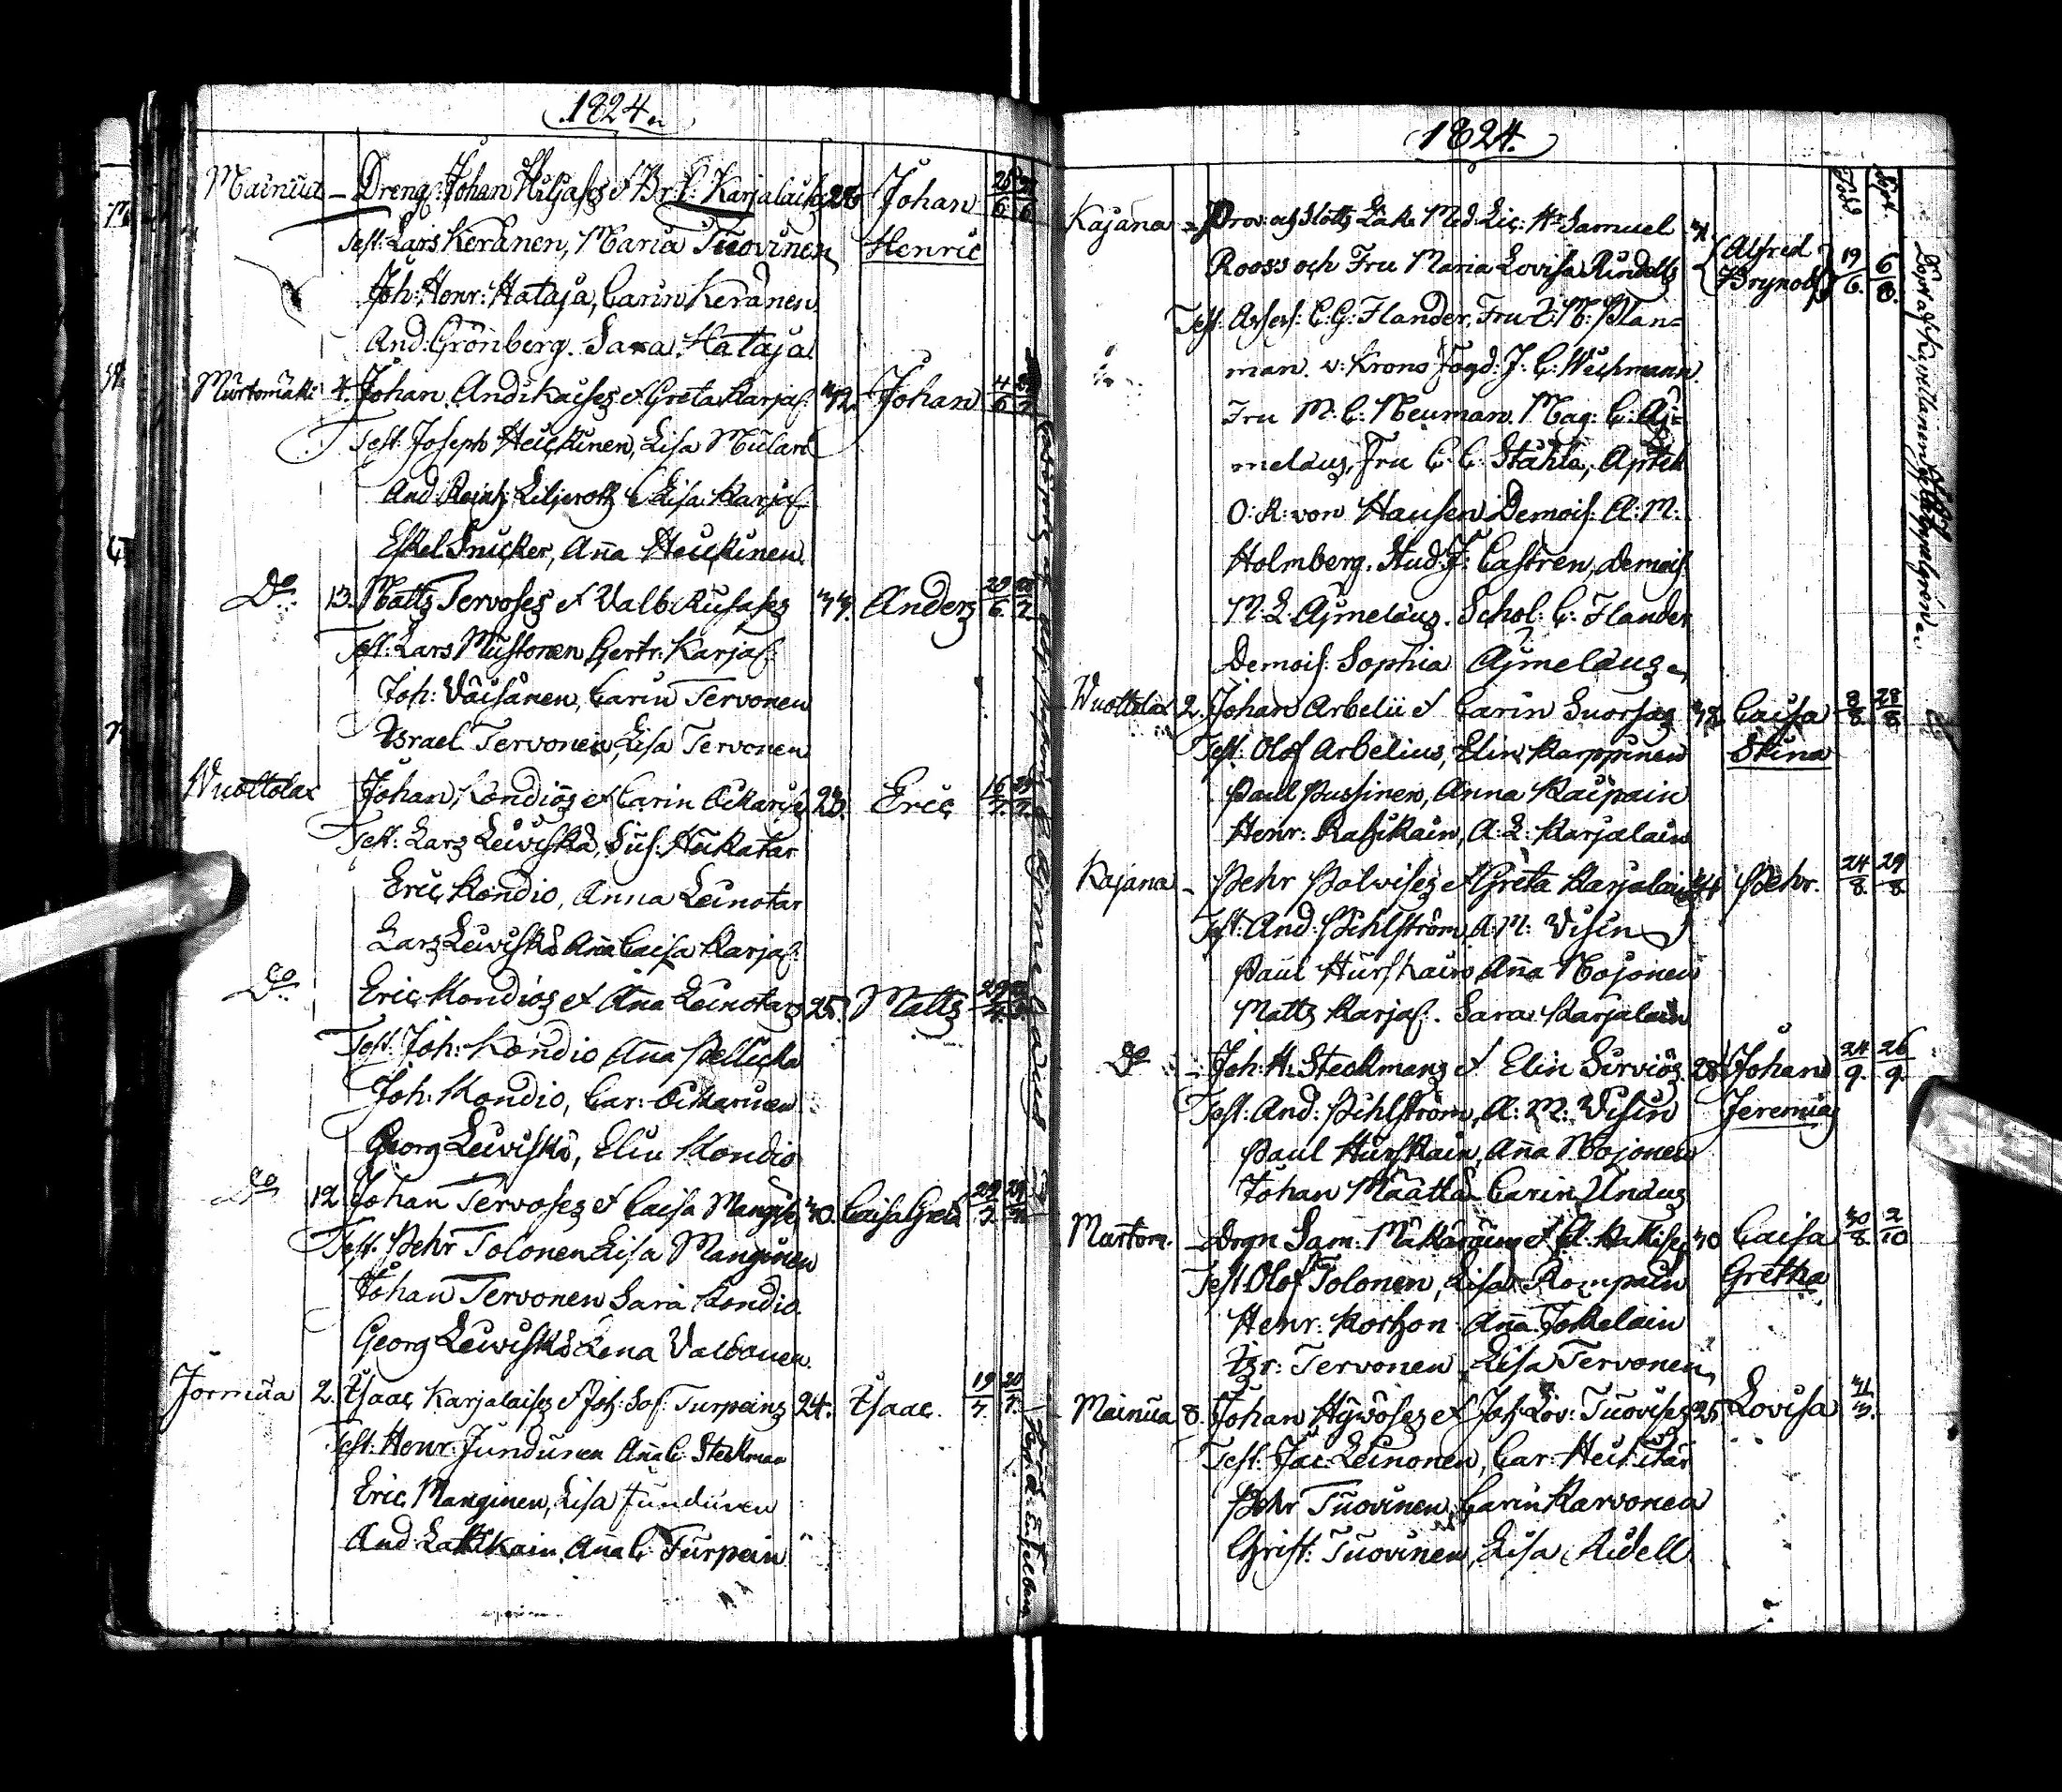 1824.
Mainua – Dreng: Johan Kiljases et Br: C: Karjalais 28 Johan 25/6
Test: Lars Keränen, Maria Tuovinen Henric
Joh: Henr: Hataja, Carin Keränen
And: Grönberg. Sara Hataja
Murtomäki 4. Johan And: Kaises et Greta Karjal: 42. Johan 4/6
Test. Joseph Heickinen, Lisa Mulari
And: Reinh: Liljeroth Lisa Karjal:
Eskel Snicker, Anna Heickinen
Do 13. Matts Tervoses et Valb: Rusases 37. Anders 29/6
Test: Lars Mustonen Gertr: Karjal:
Joh: Väisänen, Carin Tervonen
Israel Tervonen, Lisa Tervonen
Wuottolax Johan Kondios et Carin Ockarus 23. Eric 16/7
Test: Lars Leiviskä, Sus: Heikatar
Eric Kondio, Anna Leinotar
Lars Leiviskä Anna Caisa Karjal:
Do Eric Kondios et Anna Leinotars 25. Matts 29/7
Test: Joh: Kondio Anna Pellicka
Joh: Kondio, Car: Ockaruen
Georg Leiviskä, Elin Kondio
Do 12. Johan Tervoses et Caisa Mangise 30. Caisa Greta 29/7
Test. Pehr Tolonen Lisa Manginen
Johan Tervonen Sara Kondio
Georg Leiviskä Lena Valdauen
Jormua 2. Isaac Karjalaises et Joh: Sof: Turpeins 24. Isaac. 19/7 20/7
Test: Henr: Junduren Anna C: Steckman
Eric Manginen, Lisa Junduren
And: Lackkain. Anna C. Turpein
1824.
Född Döpt.
Kajana – Prov: och Slotts Läk: Med: Lic: Hr Samuel 31.
Rooss och Fru Maria Lovisa Rindells Alfred Brynolf 19/6. 6/8.
Test: Assess: C: G: Flander, Fru C: M: Plan-
man. v: Krono Fogd: J: C: Weckmann.
Fru M: C: Neuman. Mag: C: Aj-
melæus, Fru C: C: Ståhle, Aptek
O: R: von Hausen Demois: A: M:
Holmberg. Stud: J: Castren, Demois
M: L: Ajmelæus. Schol: C: Flander
Demois: Sophia Ajmelæus
Wuottolax 2. Johan Arbelii et Carin Suorsas 38. Caisa 8/8 28/8
Test: Olof Arbelius, Elin Karppinen Stina
Paul Pussinen, Anna Kaipain
Henr: Rasikain, A: L: Karjalain
Kajana – Pehr Polvises et Greta Karjalais Pehr. 24/8. 29/8
Test: And: Pihlström, A: M: Visin
Paul Hurskain Anna Mojonen
Matts Karjal. Sara Karjalain
Do – Joh: H: Steckmans et Elin Sirviös. 28 Johan 24/9. 26/9.
Test: And: Pihlström, A: M: Visin Jeremias
Paul Hurskain, Anna Mojonen
Johan Määttä Carin Undus
Murtom. – Drgn Sam: Mäkäräins et El: Kokkises 30 Caisa 30/8 2/10
Test. Olof Tolonen, Lisa Rompain Gretha
Henr: Korhon Anna Jokkelain
Isr: Tervonen Lisa Tervonen
Mainua 8. Johan Hyvöses et Joh: Lov: Tuovises 25 Lovisa 31/3.
Test: Jac: Leinonen, Car: Heikitär
Pehr Tuovinen, Carin Karvonen
Christ: Tuovinen, Lisa Ridell